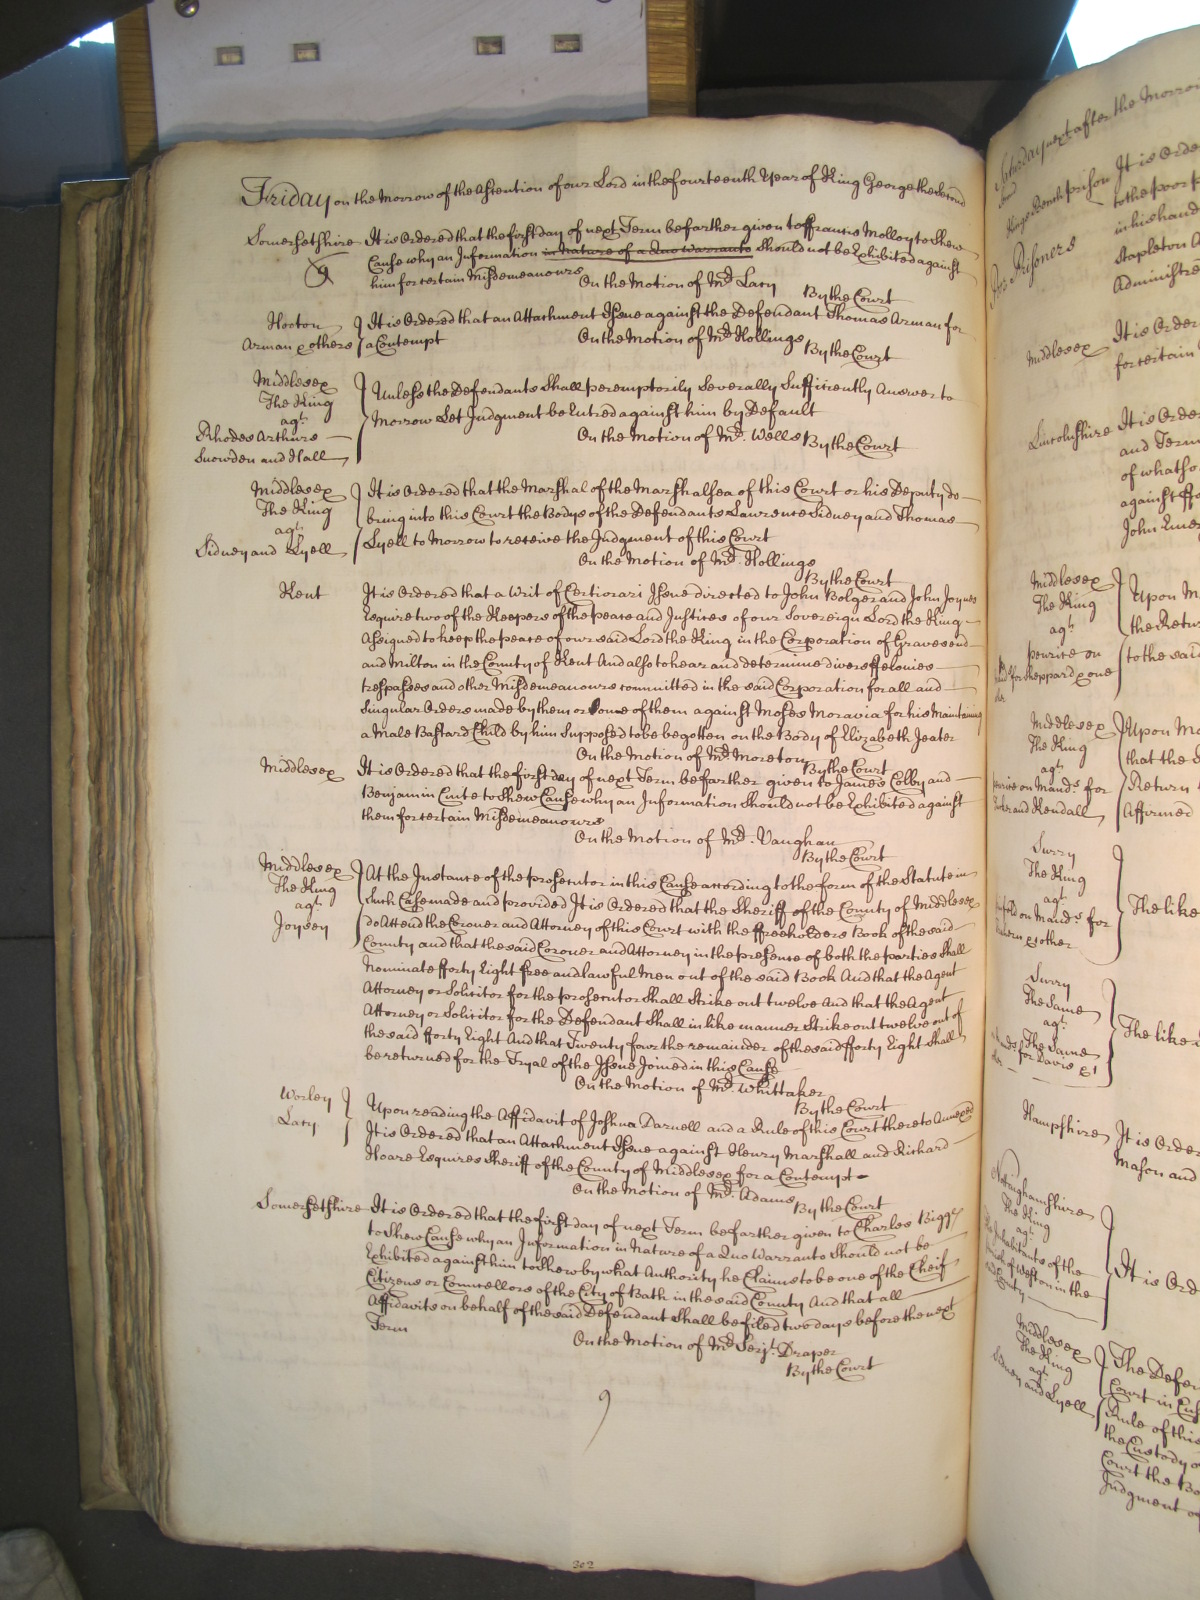 Friday on the Morrow of the Ascention of our Lord in the fourteenth Year of King George the Second
Somersetshire It is Ordered that the first day of next Term be farther given to ffrancis Molloy to Shew
Cause why an Information in Nature of a Quo Warranto Should not be Exhibited against
him for certain Misdemeanours
On the Motion of Mr. Lacy
By the Court
Hooton
Arman & others
It is Ordered that an Attachment Issue against the Defendant Thomas Arman for
a Contempt
On the Motion of Mr. Hollings
By the Court
Middlesex
The King
agt.
Rhodes Arthurs
Snowden and Hall
Unless the Defendants Shall peremptorily Severally Sufficiently Answer to
Morrow Let Judgment be Entred against him by Default
On the Motion of Mr. Wells By the Court
Middlesex
The King
agt.
Sidney and Lyell
It is Ordered that the Marshal of the Marshalsea of this Court or his Deputy do
bring into this Court the Bodys of the Defendants Lawrence Sidney and Thomas
Lyell to Morrow to receive the Judgment of this Court
On the Motion of Mr. Hollings
By the Court
Kent
It is Ordered that a Writ of Certiorari Issue directed to John Bolger and John Joynes
Esquire two of the Keepers of the peace and Justices of our Sovereign Lord the King
Assigned to keep the peace of our said Lord the King in the Corporation of Gravesend
and Milton in the County of Kent And also to hear and determine divers ffelonies
trespasses and other Misdemeanours committed in the said Corporation for all and
Singular Orders made by them or Some of them against Moses Moravia for his Maintaining
a Male Bastard Child by him Supposed to be begotten on the Body of Elizabeth Jeater
On the Motion of Mr. Moreton
By the Court
Middlesex
It is Ordered that the first day of next Term be farther given to James Colby and
Benjamin Cuite to Shew Cause why an Information Should not be Exhibited against
them for certain Misdemeanours
On the Motion of Mr. Vaughan
By the Court
Middlesex
The King
agt.
Joysey
At the Instance of the prosecutor in this Cause according to the form of the Statute in
Such Case made and provided It is Ordered that the Sheriff of the County of Middlesex
do Attend the Coroner and Attorney of this Court with the ffreeholders Book of the said
County and that the said Coroner and Attorney in the presence of both the parties Shall
Nominate fforty Eight free and lawful Men out of the said Book And that the Agent
Attorney or Solicitor for the prosecutor Shall Strike out twelve And that the Agent
Attorney or Solicitor for the Defendant Shall in like manner Strike out twelve out of
the said fforty Eight And that Twenty four the remainder of the said fforty Eight Shall
be returned for the Tryal of the Issue Joined in this Cause
On the Motion of Mr. Whittaker
By the Court
Worley
Lacy
Upon reading the Affidavit of Joshua Darnell and a Rule of this Court thereto Annexed
It is Ordered that an Attachment Issue against Henry Marshall and Richard
Hoare Esquires Sheriff of the County of Middlesex for a Contempt
On the Motion of Mr. Adams
By the Court
Somersetshire It is Ordered that the first day of next Term be farther given to Charles Biggs
to Shew Cause why an Information in Nature of a Quo Warranto Should not be
Exhibited against him to Shew by what Authority he Claims to be one of the Cheif
Citizens or Councellors of the City of Bath in the said County And that all
Affidavits on behalf of the said Defendant Shall be filed two days before the next
Term
On the Motion of Mr. Serjt. Draper
By the Court
302
Saturday next after the Morrow
Kings Bench prison It is Orde
to the poor p
in his hand
Poor Prisoners
Stapleton A
Administr
Middlesex It is Order
for certain
Lincolnshire It is Orde
and Term
of whatso
against
John
Middlesex
The King
agt.
Upon M
the Retur
to the said
Middlesex
The King
agt.
and Kendall
Upon Mo
that the
Return
Affirmed
Surry
The King
agt.
The like
Surry
The Same
agt.
The Same
The like
Hampshire It is Order
Mason and
Nottinghamshire
The King
agt.
The Inhabitants of the
parish of Weston in the
County
It is Ord
Middlesex
The King
agt.
Sidney and Lyell
The Defen
Court in Cus
Rule of this
the Custody o
Court the Bo
Judgment of